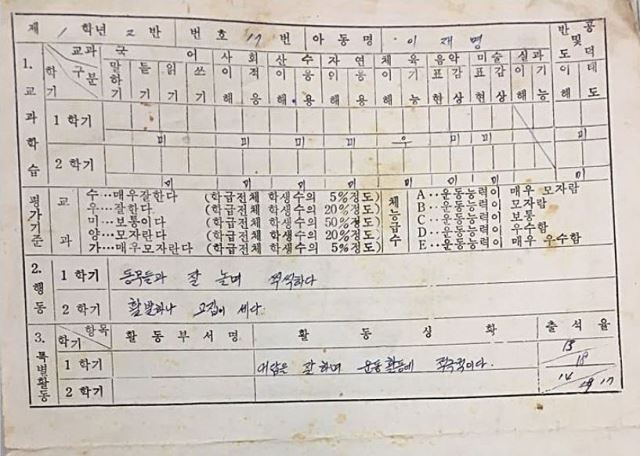 제 1 학년 2 반 번호 17 번 아동명 이 재 명
반공 및 도덕
1. 교과학습
교과 국어 사회 산수 자연 체육 음악 미술 실과
학기 구분 말하기 듣기 읽기 쓰기 이해 적응 이해 응용 이해 응용 이해 기능 표현 감상 표현 감상 이해 기능 이해 태도
1 학기
미 미 미 미 우 미 미 미
2 학기
미 미 미 미 미 미 미 미
평가기준
교과
수…매우잘한다 (학급전체 학생수의 5%정도)
우…잘한다 (학급전체 학생수의 20%정도)
미…보통이다 (학급전체 학생수의 50%정도)
양…모자란다 (학급전체 학생수의 20%정도)
가…매우모자란다 (학급전체 학생수의 5%정도)
체능급수
A‥운동능력이 매우 모자람
B‥운동능력이 모자람
C‥운동능력이 보통
D‥운동능력이 우수함
E‥운동능력이 매우 우수함
2. 행동
1 학기 동무들과 잘 놀며 씩씩하다
2 학기 활발하나 고집이 세다.
3. 특별활동
항목 학기 활동부서명 활동상황 출석율
1 학기 대답은 잘 하며 운동활동에 적극적이다.
2 학기